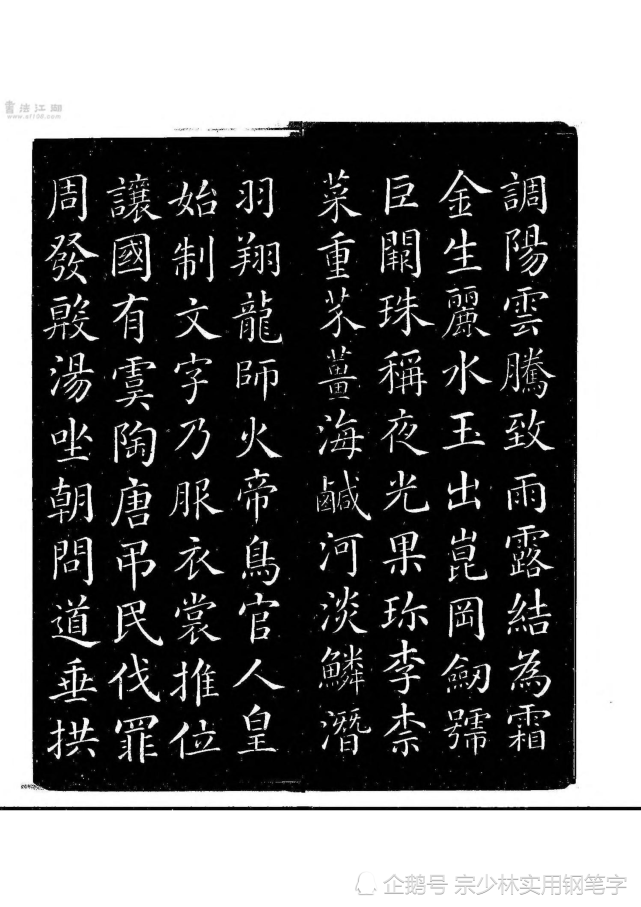 書法江湖
www.sf108.com
調陽雲騰致雨露結為霜
金生麗水玉出崑岡劒號
巨闕珠稱夜光果珎李柰
菜重芥薑海鹹河淡鱗潛
羽翔龍師火帝鳥官人皇
始制文字乃服衣裳推位
讓國有虞陶唐吊民伐罪
周發殷湯坐朝問道垂拱
企鹅号 宗少林实用钢笔字